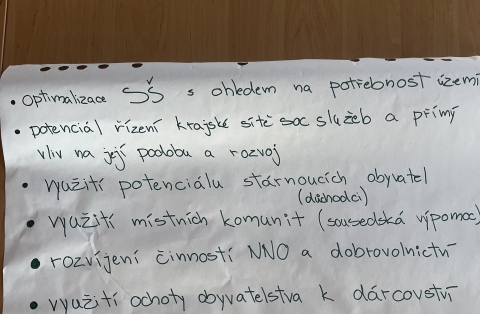 • Optimalizace SŠ s ohledem na potřebnost území
• potenciál řízení krajské sítě soc služeb a přímý
vliv na její podobu a rozvoj
• využití potenciálu stárnoucích obyvatel
(důchodci)
• využití místních komunit (sousedská výpomoc)
• rozvíjení činností NNO a dobrovolnictví
• využití ochoty obyvatelstva k dárcovství